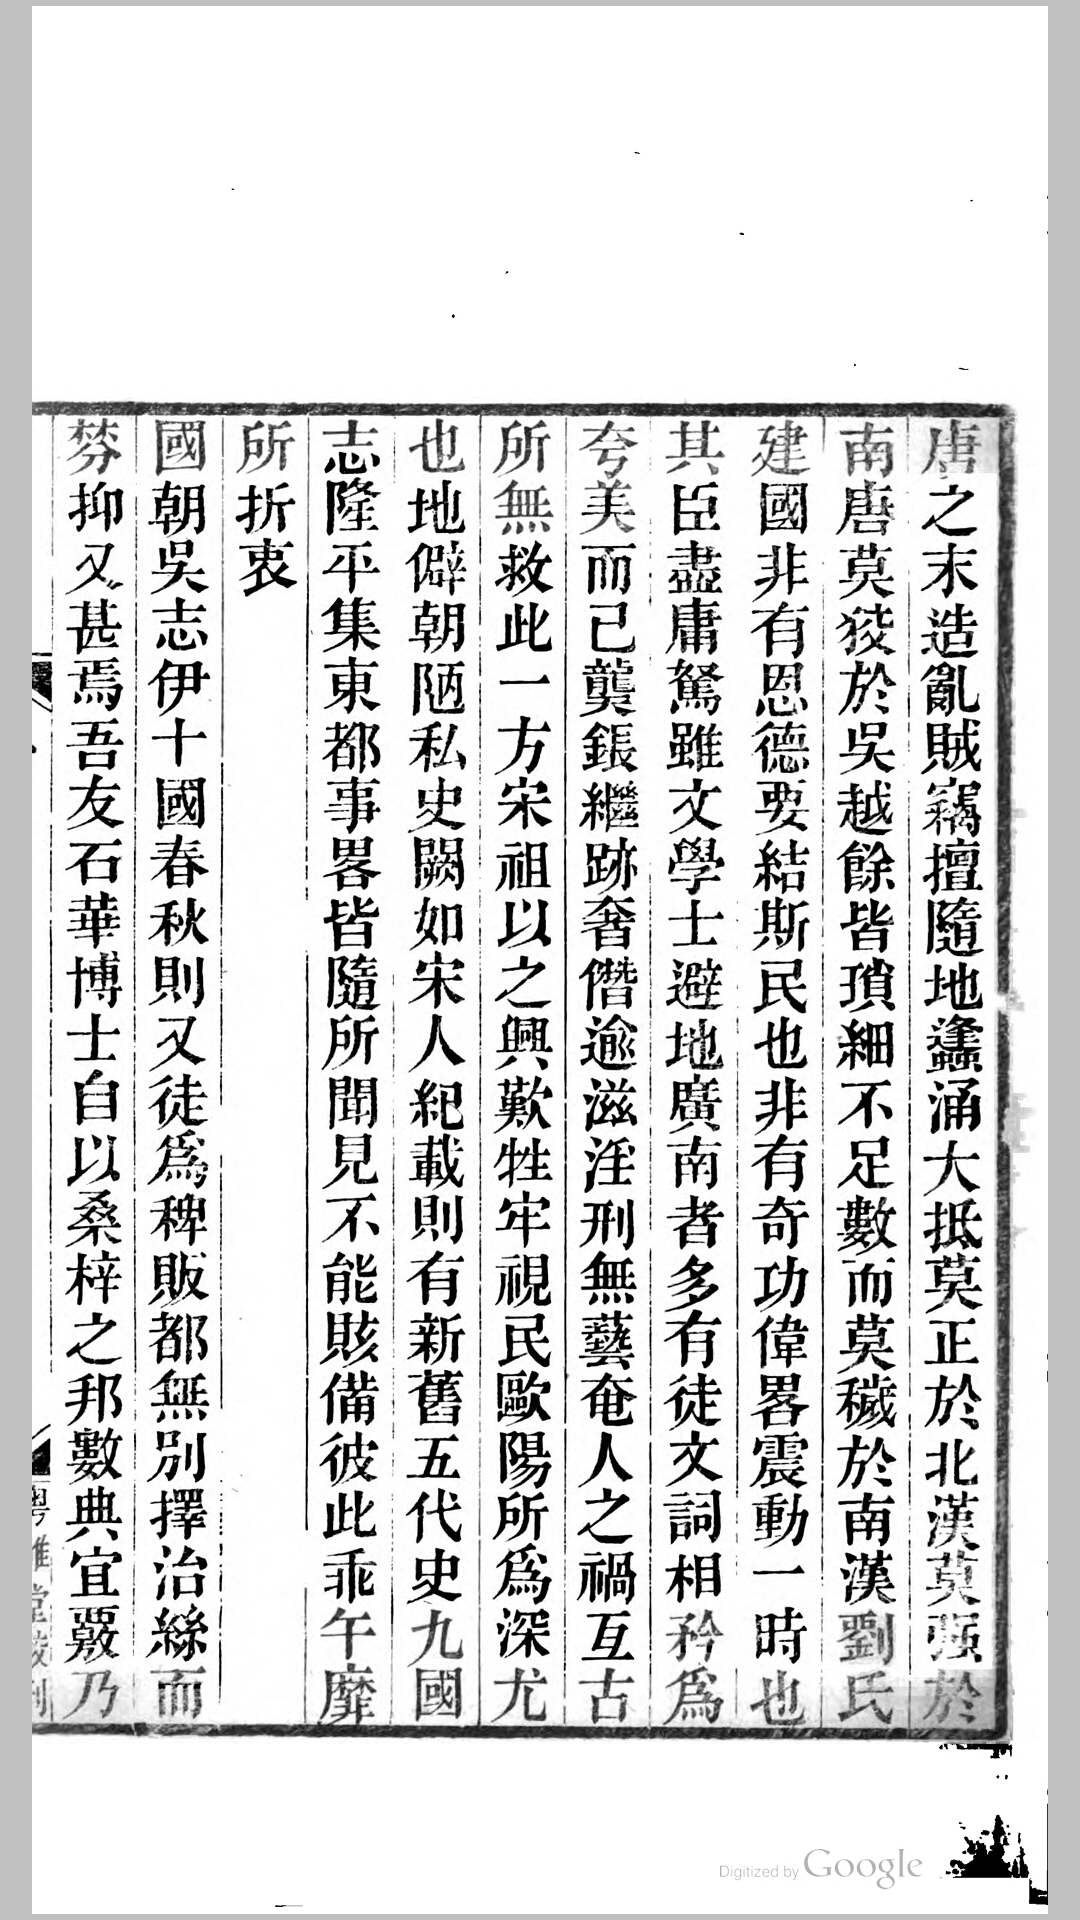 唐之末造亂賊竊擅隨地蠭涌大抵莫正於北漢莫强於
南唐莫狡於吳越餘皆瑣細不足數而莫穢於南漢劉氏
建國非有恩德要結斯民也非有奇功偉畧震動一時也
其臣盡庸駑雖文學士避地廣南者多有徒文詞相矜爲
夸美而已龑鋹繼跡奢僭逾滋淫刑無藝奄人之禍亙古
所無救此一方宋祖以之興歎牲牢視民歐陽所爲深尤
也地僻朝陋私史闕如宋人紀載則有新舊五代史九國
志隆平集東都事畧皆隨所聞見不能賅備彼此乖午靡
所折衷
國朝吳志伊十國春秋則又徒爲稗販都無別擇治絲而
棼抑又甚焉吾友石華博士自以桑梓之邦數典宜覈乃
粤雅堂校刊
Digitized by Google